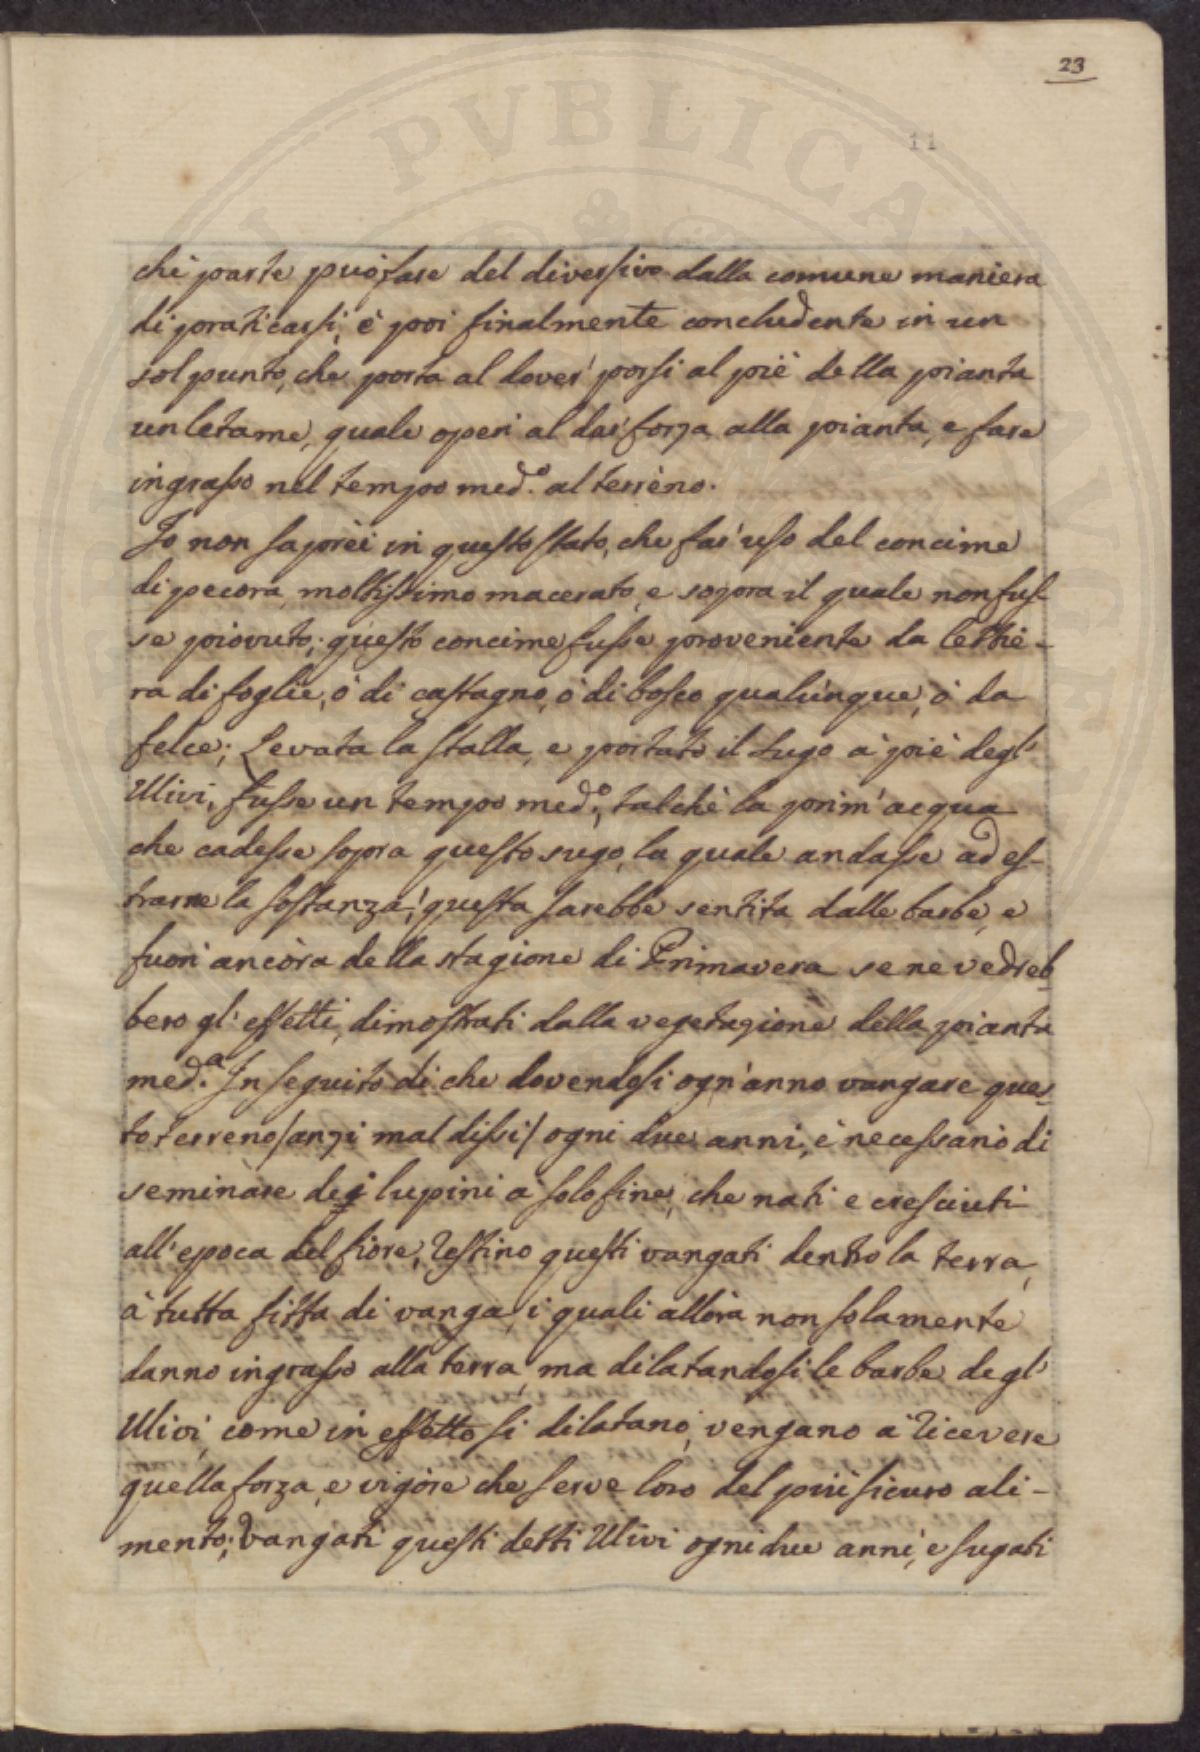 23
11
chi parte può fare del diversivo dalla comune maniera
di praticarsi, è poi finalmente concludente in un
sol punto, che porta al dover' porsi al piè della pianta
un letame, quale operi al dar' forza alla pianta, e fare
ingrasso nel tempo med.° al terrèno.
Io non saprèi in questo stato, che far' uso del concime
di pecora moltissimo macerato, e sopra il quale non fus-
se piovuto; questo concime fusse proveniente da lettie-
ra di foglie, ò di castagno, ò di bosco qualùnque, ò da
felce; Levata la stalla, e portato il sugo a' piè degl'
Ulivi, fusse un tempo med.°, talchè la prim' acqua
che cadesse sopra questo sugo, la quale andasse ad es-
trarne la sostanza, questa sarebbe sentita dalle barbe, e
fuori ancòra della stagione di Primavera se ne vedreb-
bero gl' effetti, dimostrati dalla vegetazione della pianta
med.a In seguito di che dovendosi ogn' anno vangare ques-
to terreno/anzi mal dissi/ ogni due anni, è necessario di
seminàre dei lupini a solo fine, che nati e cresciuti
all' epoca del fiore, restino questi vangati dentro la terra,
à tutta fitta di vanga, i quali allòra non solamente
danno ingrasso alla terra, ma dilatandosi le barbe degl'
Ulivi, come in effetto si dilatano, vengano à ricevere
quella forza, e vigòre che serve loro del più sicuro ali-
mento; Vangati questi detti Ulivi ogni due anni, e sugati